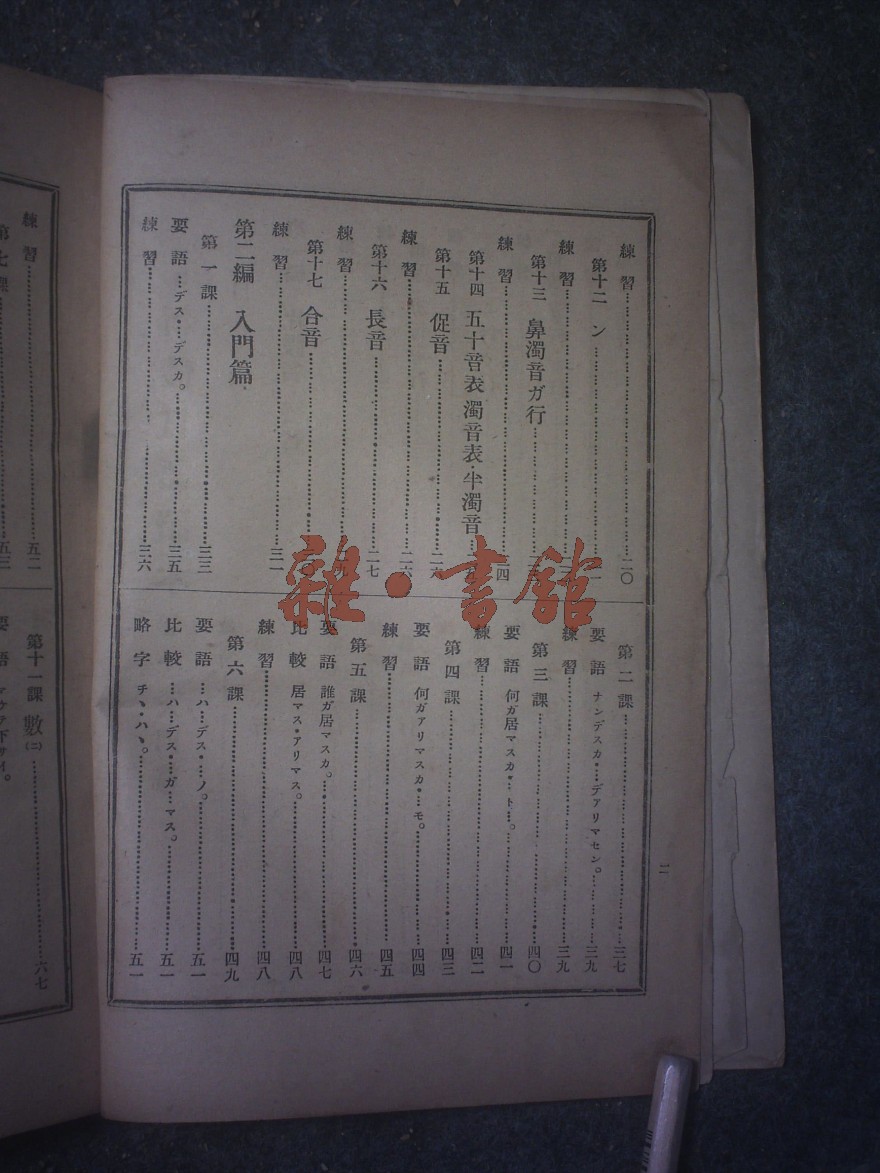 練習……二〇
第十二 ン……
練習……
第十三 鼻濁音ガ行……
練習……
第十四 五十音表濁音表・半濁音……
第十五 促音……二六
練習……二六
第十六 長音……二七
練習……
第十七 合音……
練習……三一
第二編 入門篇
第一課……三三
要語 …デス・…デスカ。……三五
練習……三六
第二課……三七
要語 ナンデスカ・…デアリマセン。……三九
練習……三九
第三課……四〇
要語 何ガ居マスカ・…ト…。……四一
練習……四二
第四課……四三
要語 何ガアリマスカ・…モ。……四四
練習……四五
第五課……四六
要語 誰ガ居マスカ。……四七
比較 居マス・アリマス。……四八
練習……四八
第六課……四九
要語 …ハ…デス・…ノ。……五一
比較 …ハ…デス・…ガ…マス。……五一
略字 チヽ・ハヽ。……五一
二
練習……五二
第七課……五三
第十一課 數(二)……六七
雜・書館